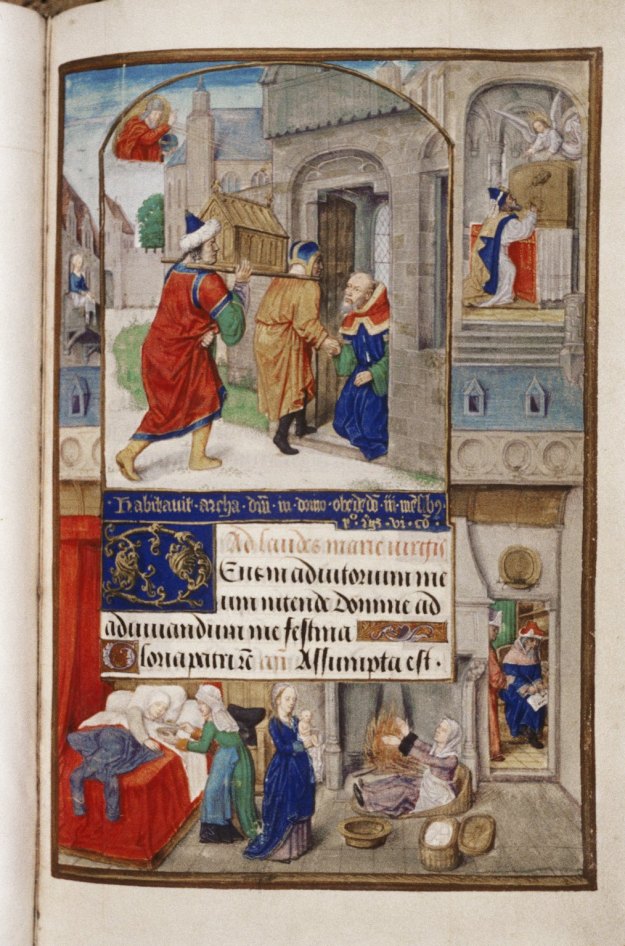 Habitauit · archa · dñi · in · domo · obededõ · iii · mēsibꝫ
Ad laudes marie uirgīs
Deus in adiutorium me
um intende Domine ad
adiuuandum me festina
Gloria patri &c añ Assumpta est ·